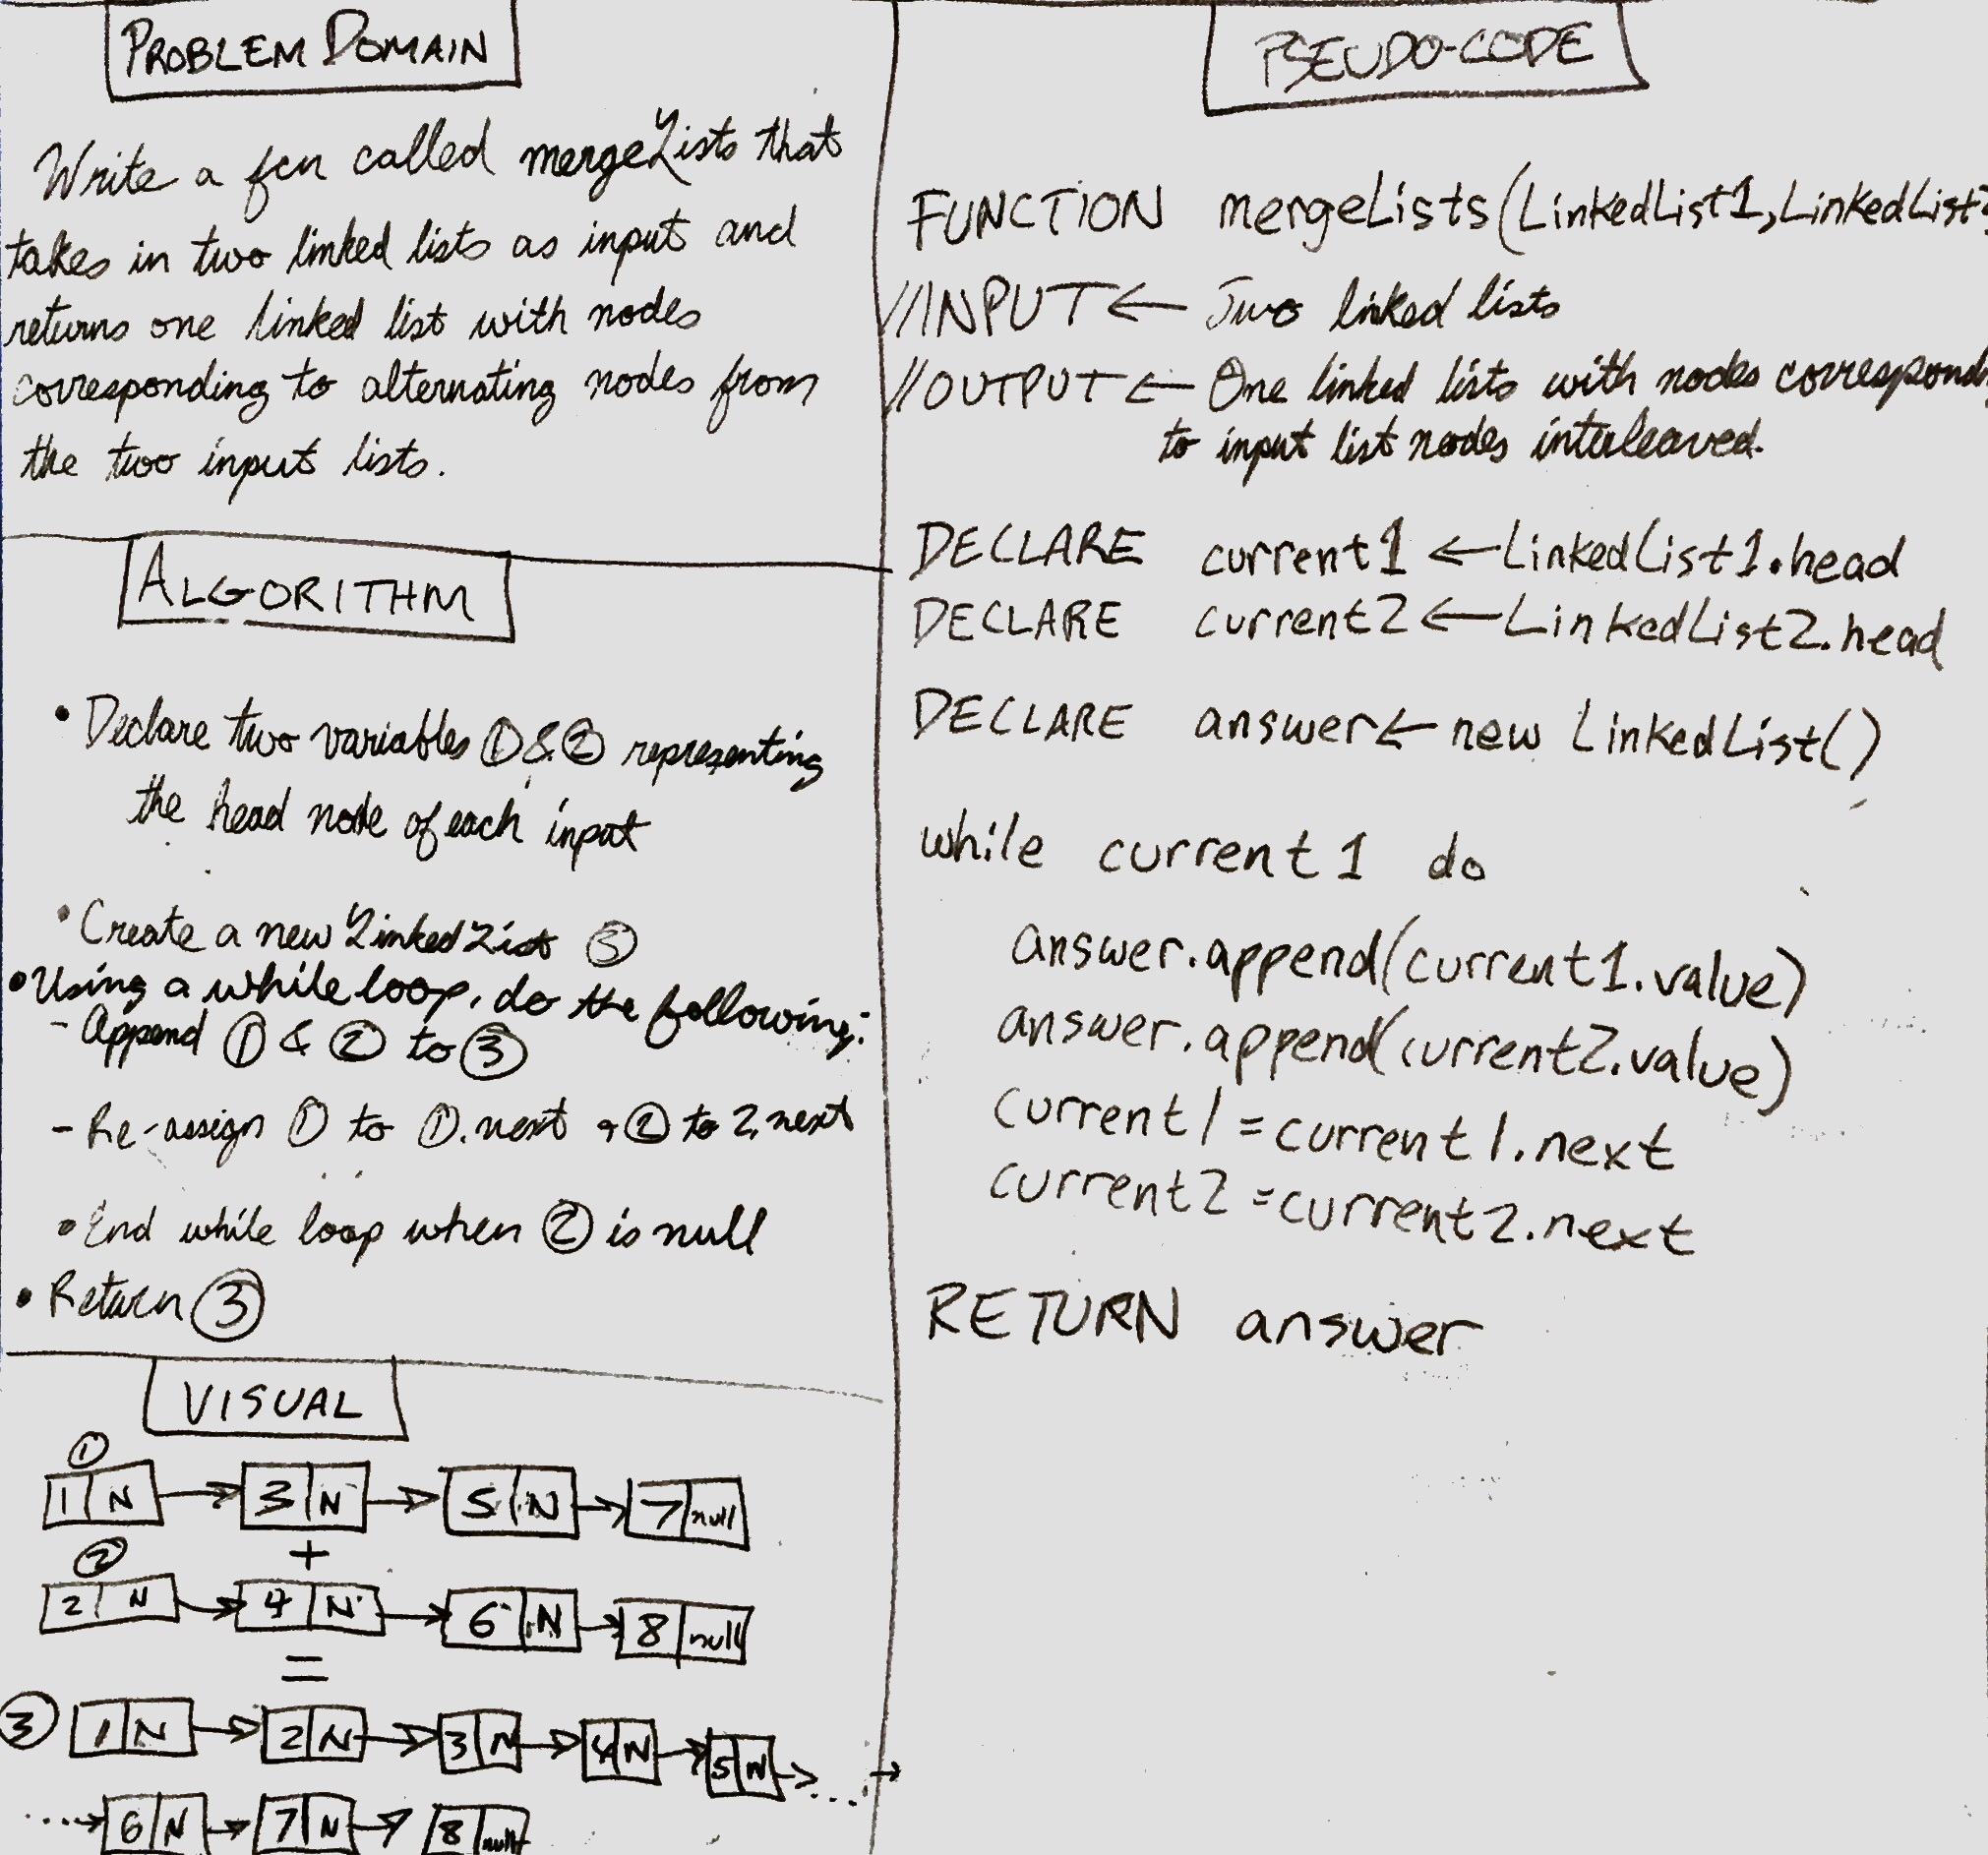 PROBLEM DOMAIN
Write a fcn called mergeLists that
takes in two linked lists as input and
returns one linked list with nodes
corresponding to alternating nodes from
the two input lists.
ALGORITHM
• Declare two variables ① & ② representing
the head node of each input
• Create a new LinkedList ③
• Using a while loop, do the following:
- Append ① & ② to ③
- Re-assign ① to ①.next + ② to 2.next
• End while loop when ② is null
• Return ③
VISUAL
①
1 N → 3 N → 5 N → 7 null
② +
2 N → 4 N → 6 N → 8 null
=
③ 1 N → 2 N → 3 N → 4 N → 5 N → ... →
....→ 6 N → 7 N → 8 null
PSEUDO-CODE
FUNCTION mergeLists(LinkedList1, LinkedList2
//INPUT ← Two linked lists
//OUTPUT ← One linked lists with nodes correspond
to input list nodes interleaved.
DECLARE current1 ← LinkedList1.head
DECLARE current2 ← LinkedList2.head
DECLARE answer ← new LinkedList()
while current1 do
answer.append(current1.value)
answer.append(current2.value)
current1 = current1.next
current2 = current2.next
RETURN answer